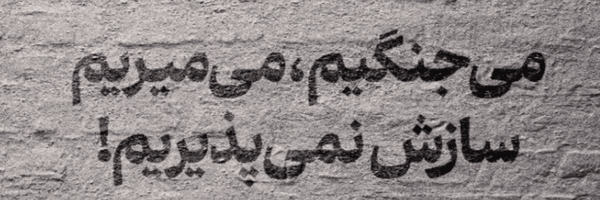 می‌جنگیم،می‌میریم
سازش نمی‌پذیریم!